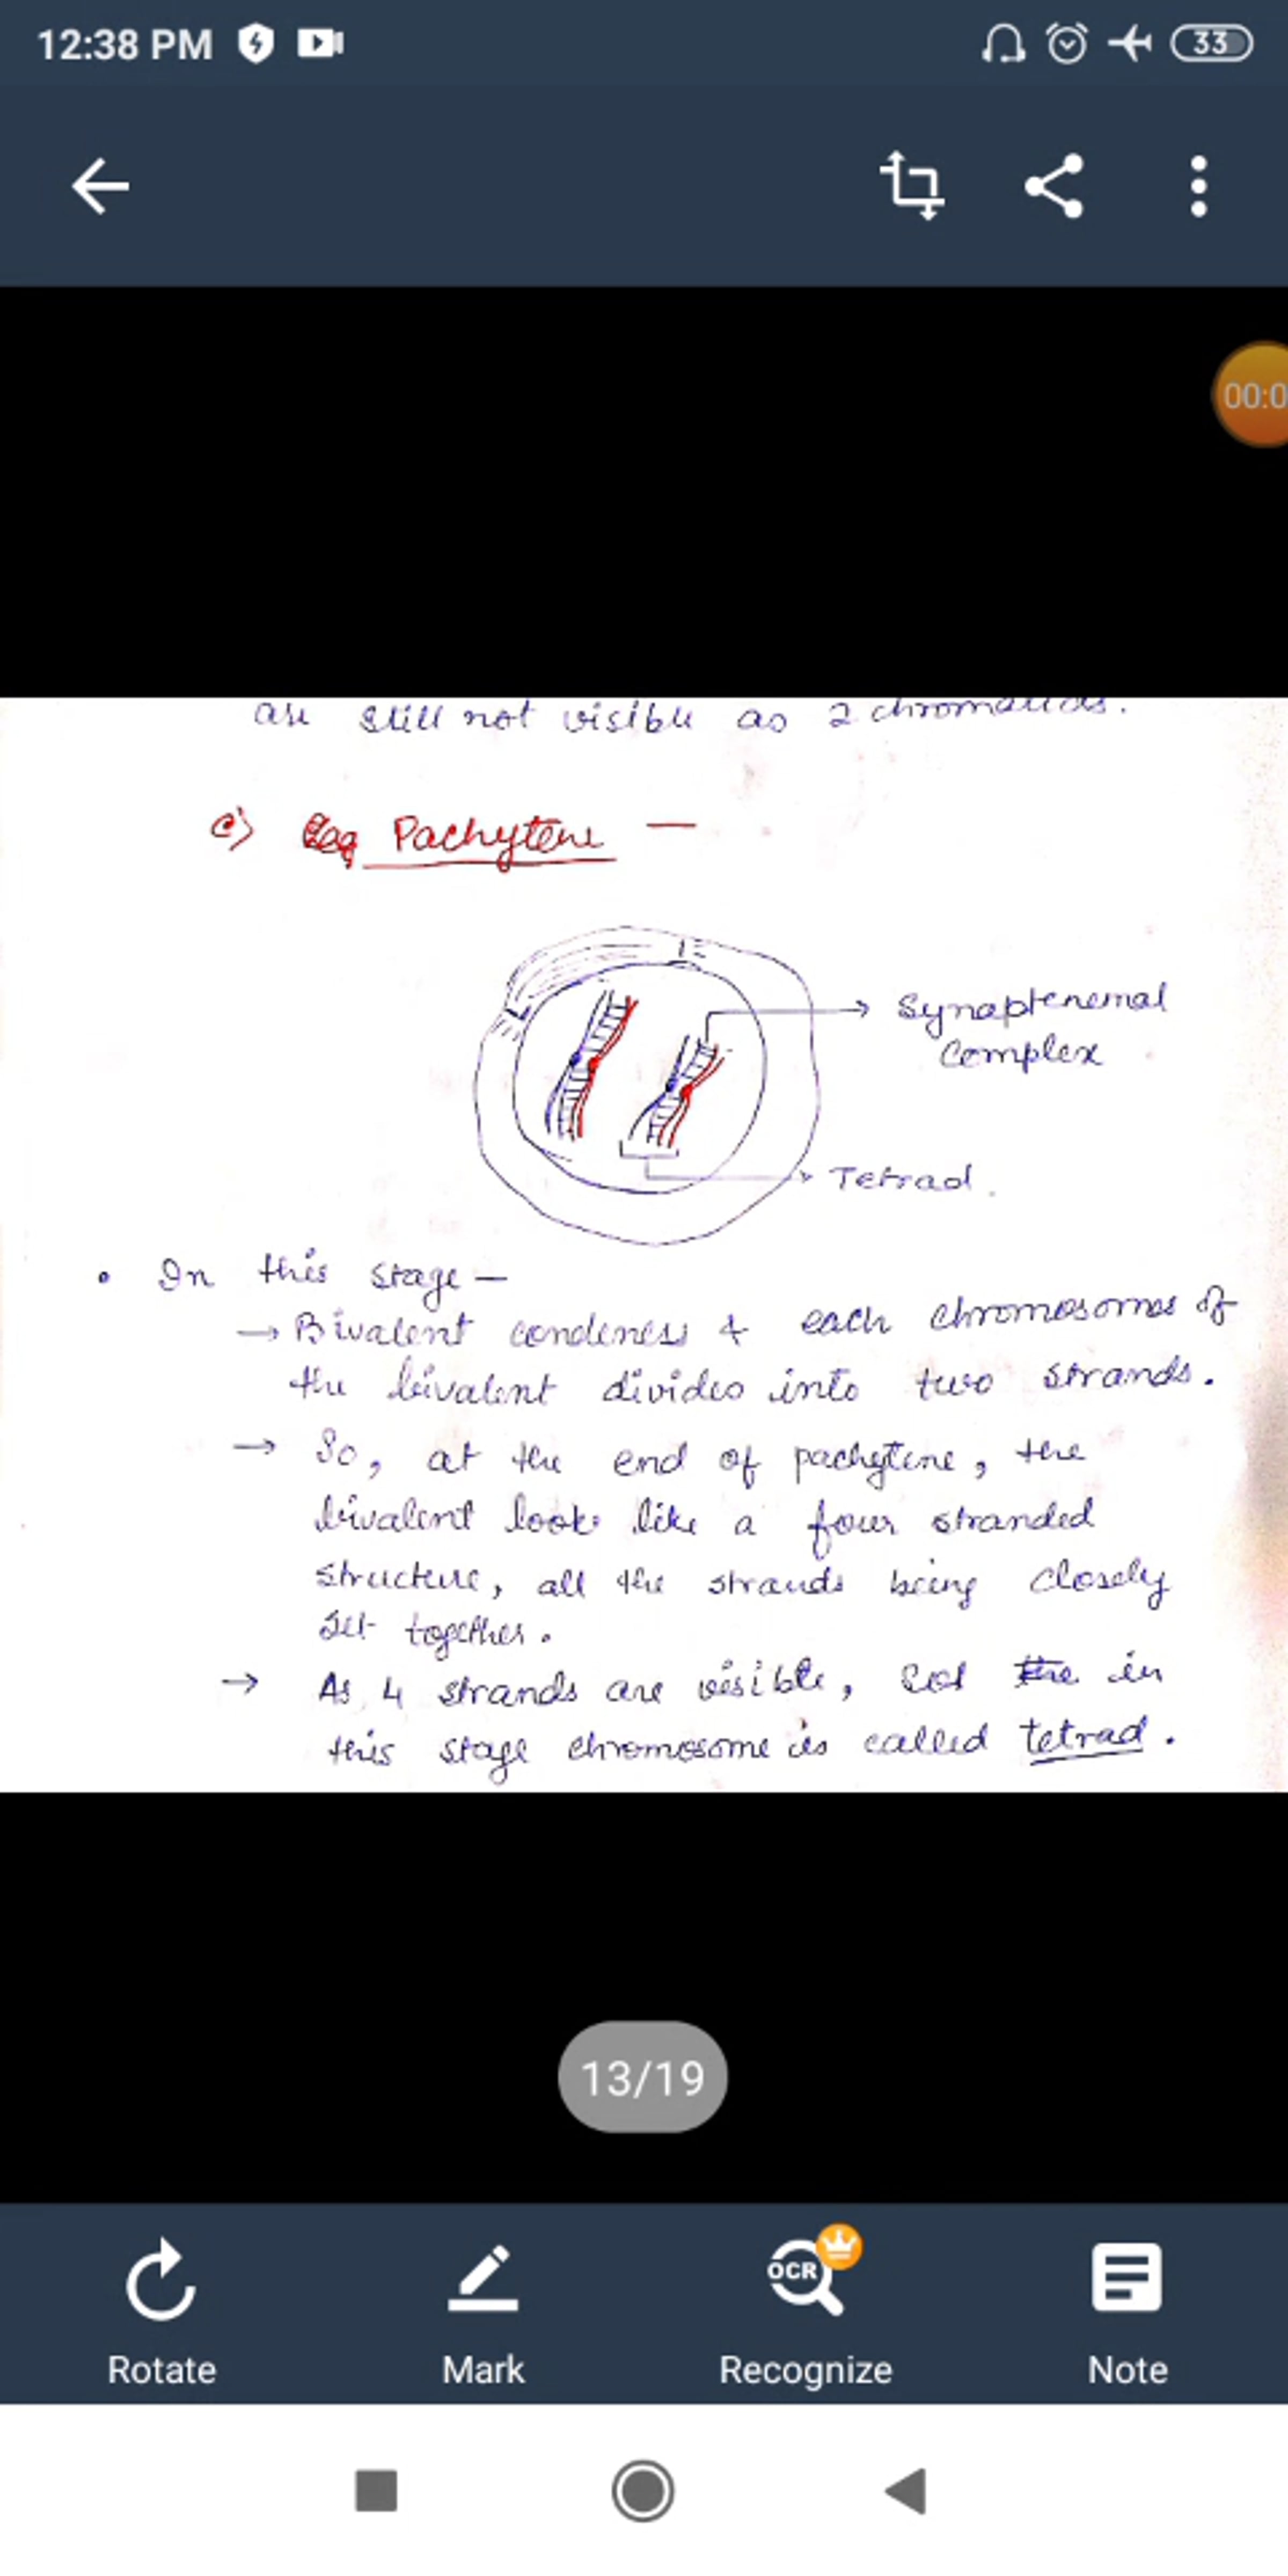 12:38 PM
33
00:0
are still not visible as 2 chromatids.
c) Pachytene —
Synaptenemal
Complex
Tetrad.
• In this stage —
→ Bivalent condeness & each chromosomes of
the bivalent divides into two strands.
→ So, at the end of pachytene, the
bivalent looks like a four stranded
structure, all the strands being closely
set together.
→ As 4 strands are visible, the in
this stage chromosome is called tetrad.
13/19
OCR
Rotate Mark Recognize Note